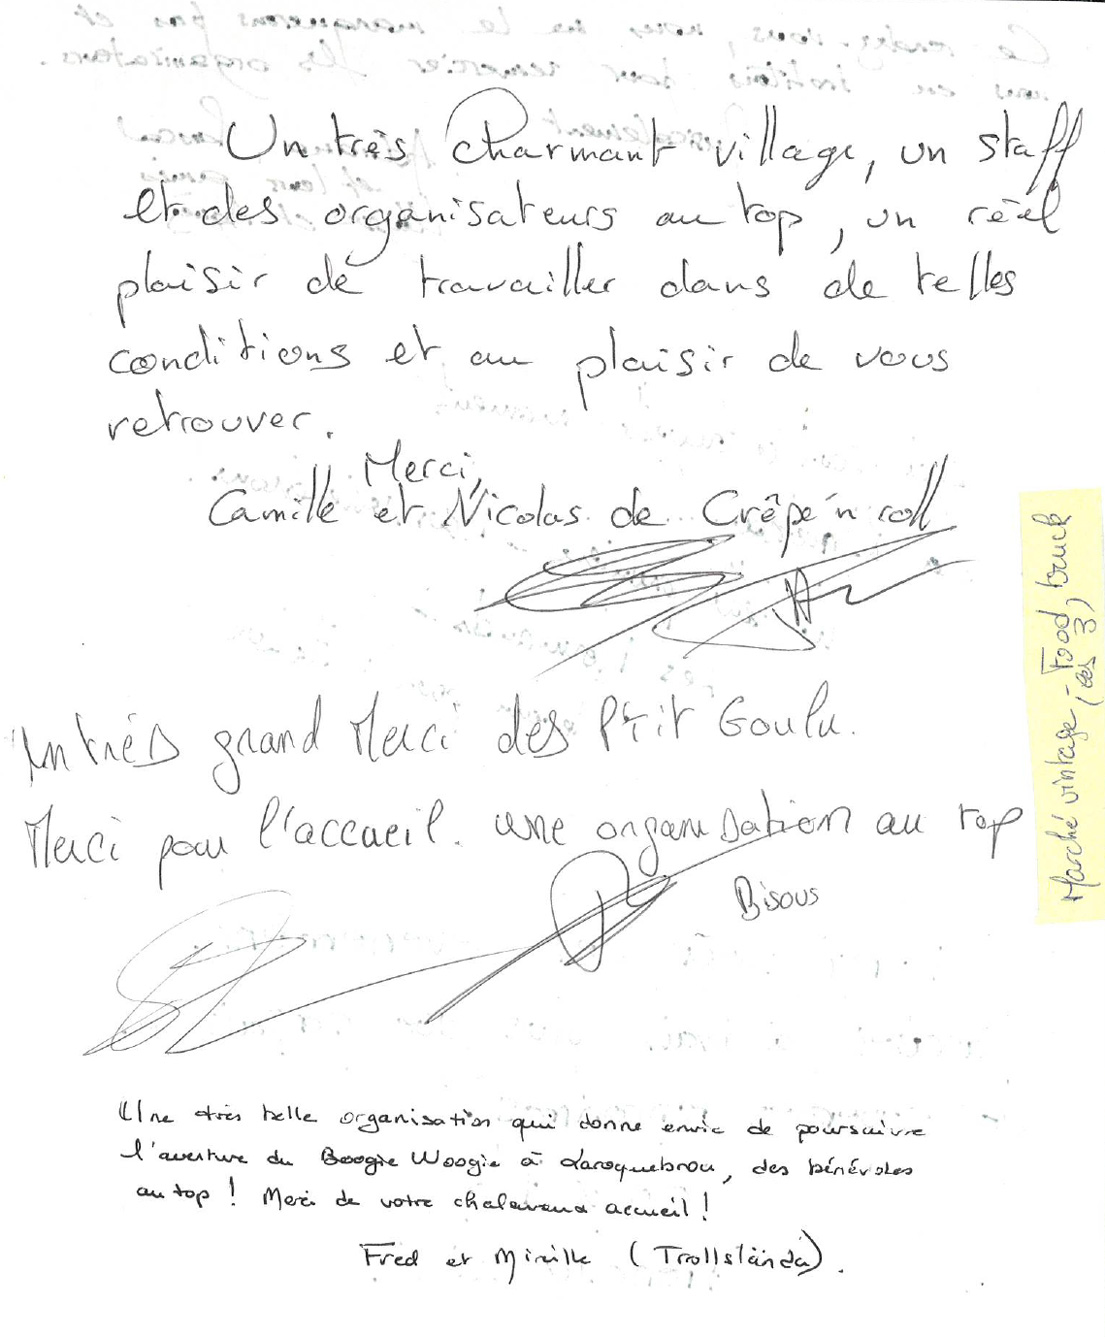 Un très charmant village, un staff
et des organisateurs au top, un réel
plaisir de travailler dans de telles
conditions et au plaisir de vous
retrouver.
Merci,
Camille et Nicolas de Crêpe'n roll
Un très grand Merci des P'tit Goulu.
Merci pour l'accueil. une organisation au top
Bisous
Une très belle organisation qui donne envie de poursuivre
l'aventure du Boogie Woogie à Laroquebrou, des bénévoles
au top ! Merci de votre chaleureux accueil !
Fred et Mireille (Trollslända).
Marché vintage - Food truck
(les 3)